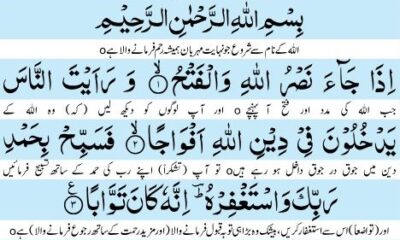 بِسْمِ اللهِ الرَّحْمٰنِ الرَّحِيْمِ
اللہ کے نام سے شروع جو نہایت مہربان ہمیشہ رحم فرمانے والا ہے o
اِذَا جَآءَ نَصْرُ اللهِ وَالْفَتْحُ ۙ‏﴿۱﴾ وَ رَاَيْتَ النَّاسَ
جب اللہ کی مدد اور فتح آ پہنچے o اور آپ لوگوں کو دیکھ لیں (کہ) وہ اللہ کے
يَدْخُلُوْنَ فِيْ دِيْنِ اللهِ اَفْوَاجًا ۙ‏﴿۲﴾ فَسَبِّحْ بِحَمْدِ
دین میں جوق در جوق داخل ہو رہے ہیں o تو آپ (تشکراً) اپنے رب کی حمد کے ساتھ تسبیح فرمائیں
رَبِّكَ وَاسْتَغْفِرْهُ ؕ اِنَّهٗ كَانَ تَوَّابًا ﴿۳﴾ ع
اور (تواضعاً) اس سے استغفار کریں، بیشک وہ بڑا ہی توبہ قبول فرمانے والا (اور مزید رحمت کے ساتھ رجوع فرمانے والا) ہے o